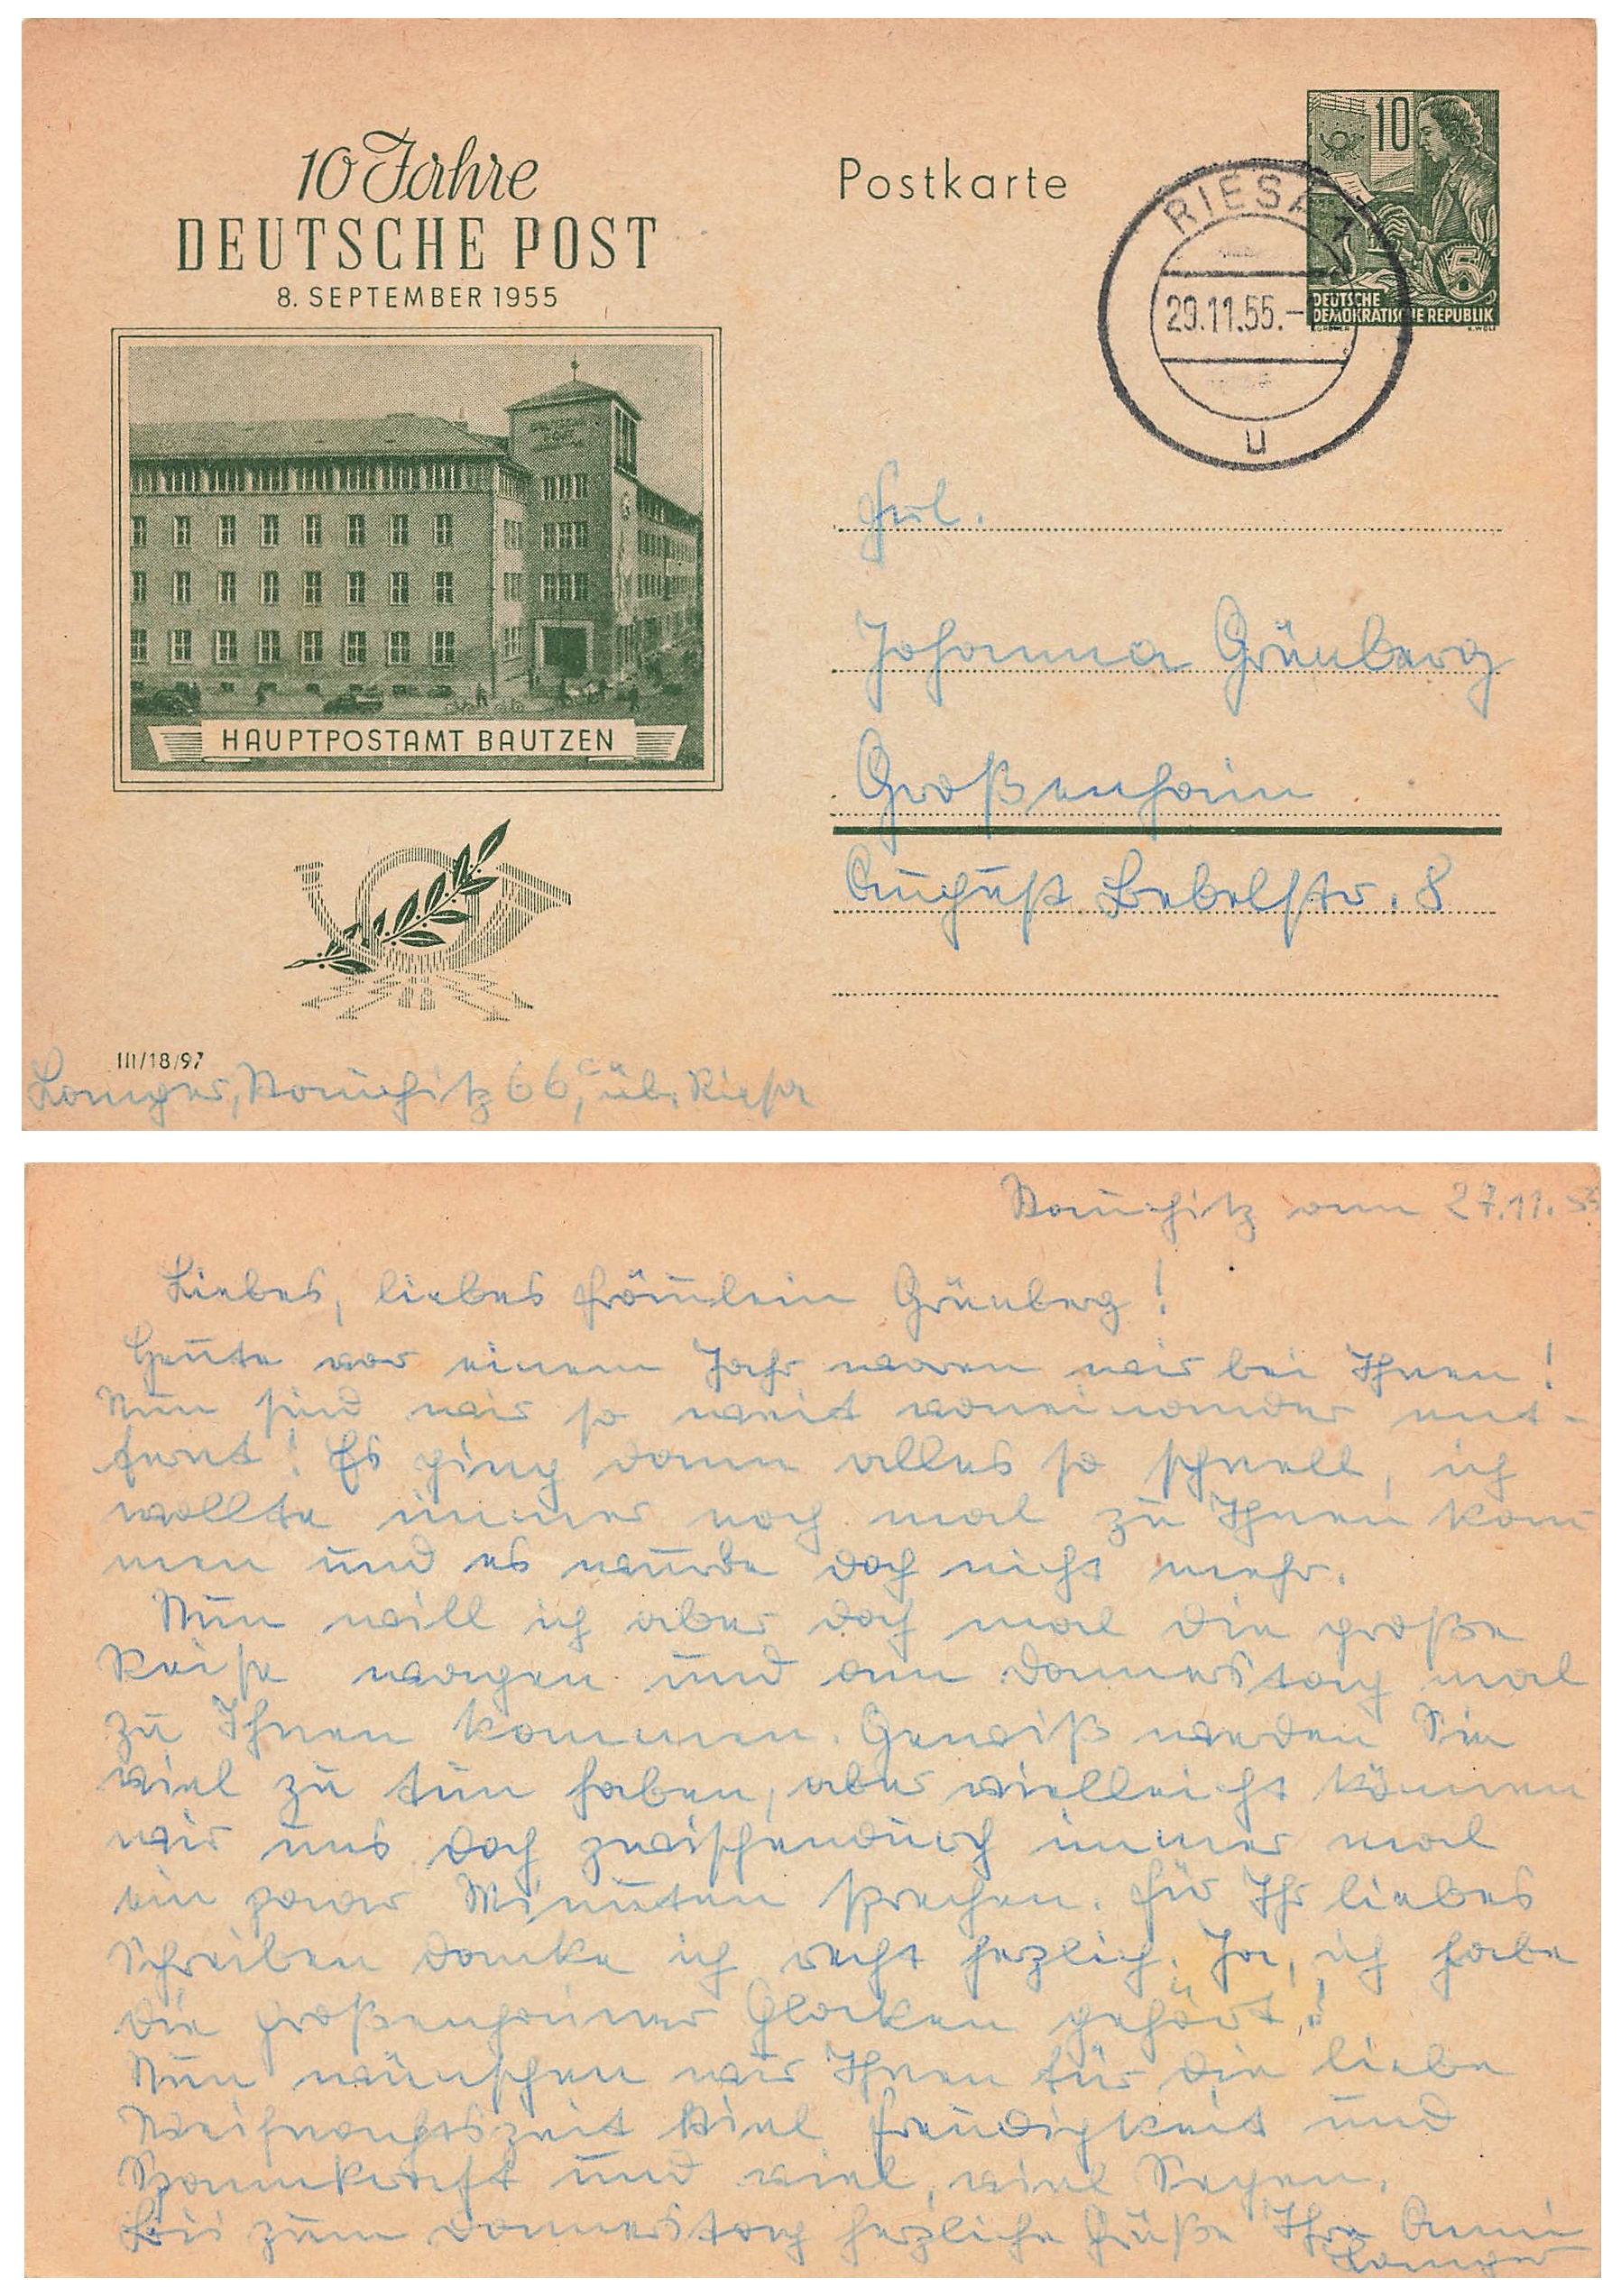 10 Jahre
DEUTSCHE POST
8. SEPTEMBER 1955
HAUPTPOSTAMT BAUTZEN
III/18/97
Postkarte
10
5
DEUTSCHE
DEMOKRATISCHE REPUBLIK
RIESA 1
29.11.55.-
u
Frl.
Johanna Grünberg
Großenhain
August Bebelstr. 8
Langer, Nauchitz 66, üb. Riesa
Nauchitz am 27.11.55
Liebes, liebes Fräulein Grünberg!
Heute vor einem Jahr waren wir bei Ihnen!
Nun sind wir so weit voneinander ent-
fernt! Es ging dann alles so schnell, ich
wollte immer noch mal zu Ihnen kom
men und es wurde doch nicht mehr.
Nun will ich aber doch mal die große
Reise wagen und am Donnerstag mal
zu Ihnen kommen. Gewiß werden Sie
viel zu tun haben, aber vielleicht können
wir uns doch zwischendurch immer mal
ein paar Minuten sprechen. Für Ihr liebes
Schreiben danke ich recht herzlich. Ja, ich habe
die „großenhainer Glocken gehört“!
Nun wünschen wir Ihnen für die liebe
Weihnachtszeit viel Freudigkeit und
Spannkraft und viel, viel Segen.
Bis zum Donnerstag herzliche Grüße Ihre Anni
Langer